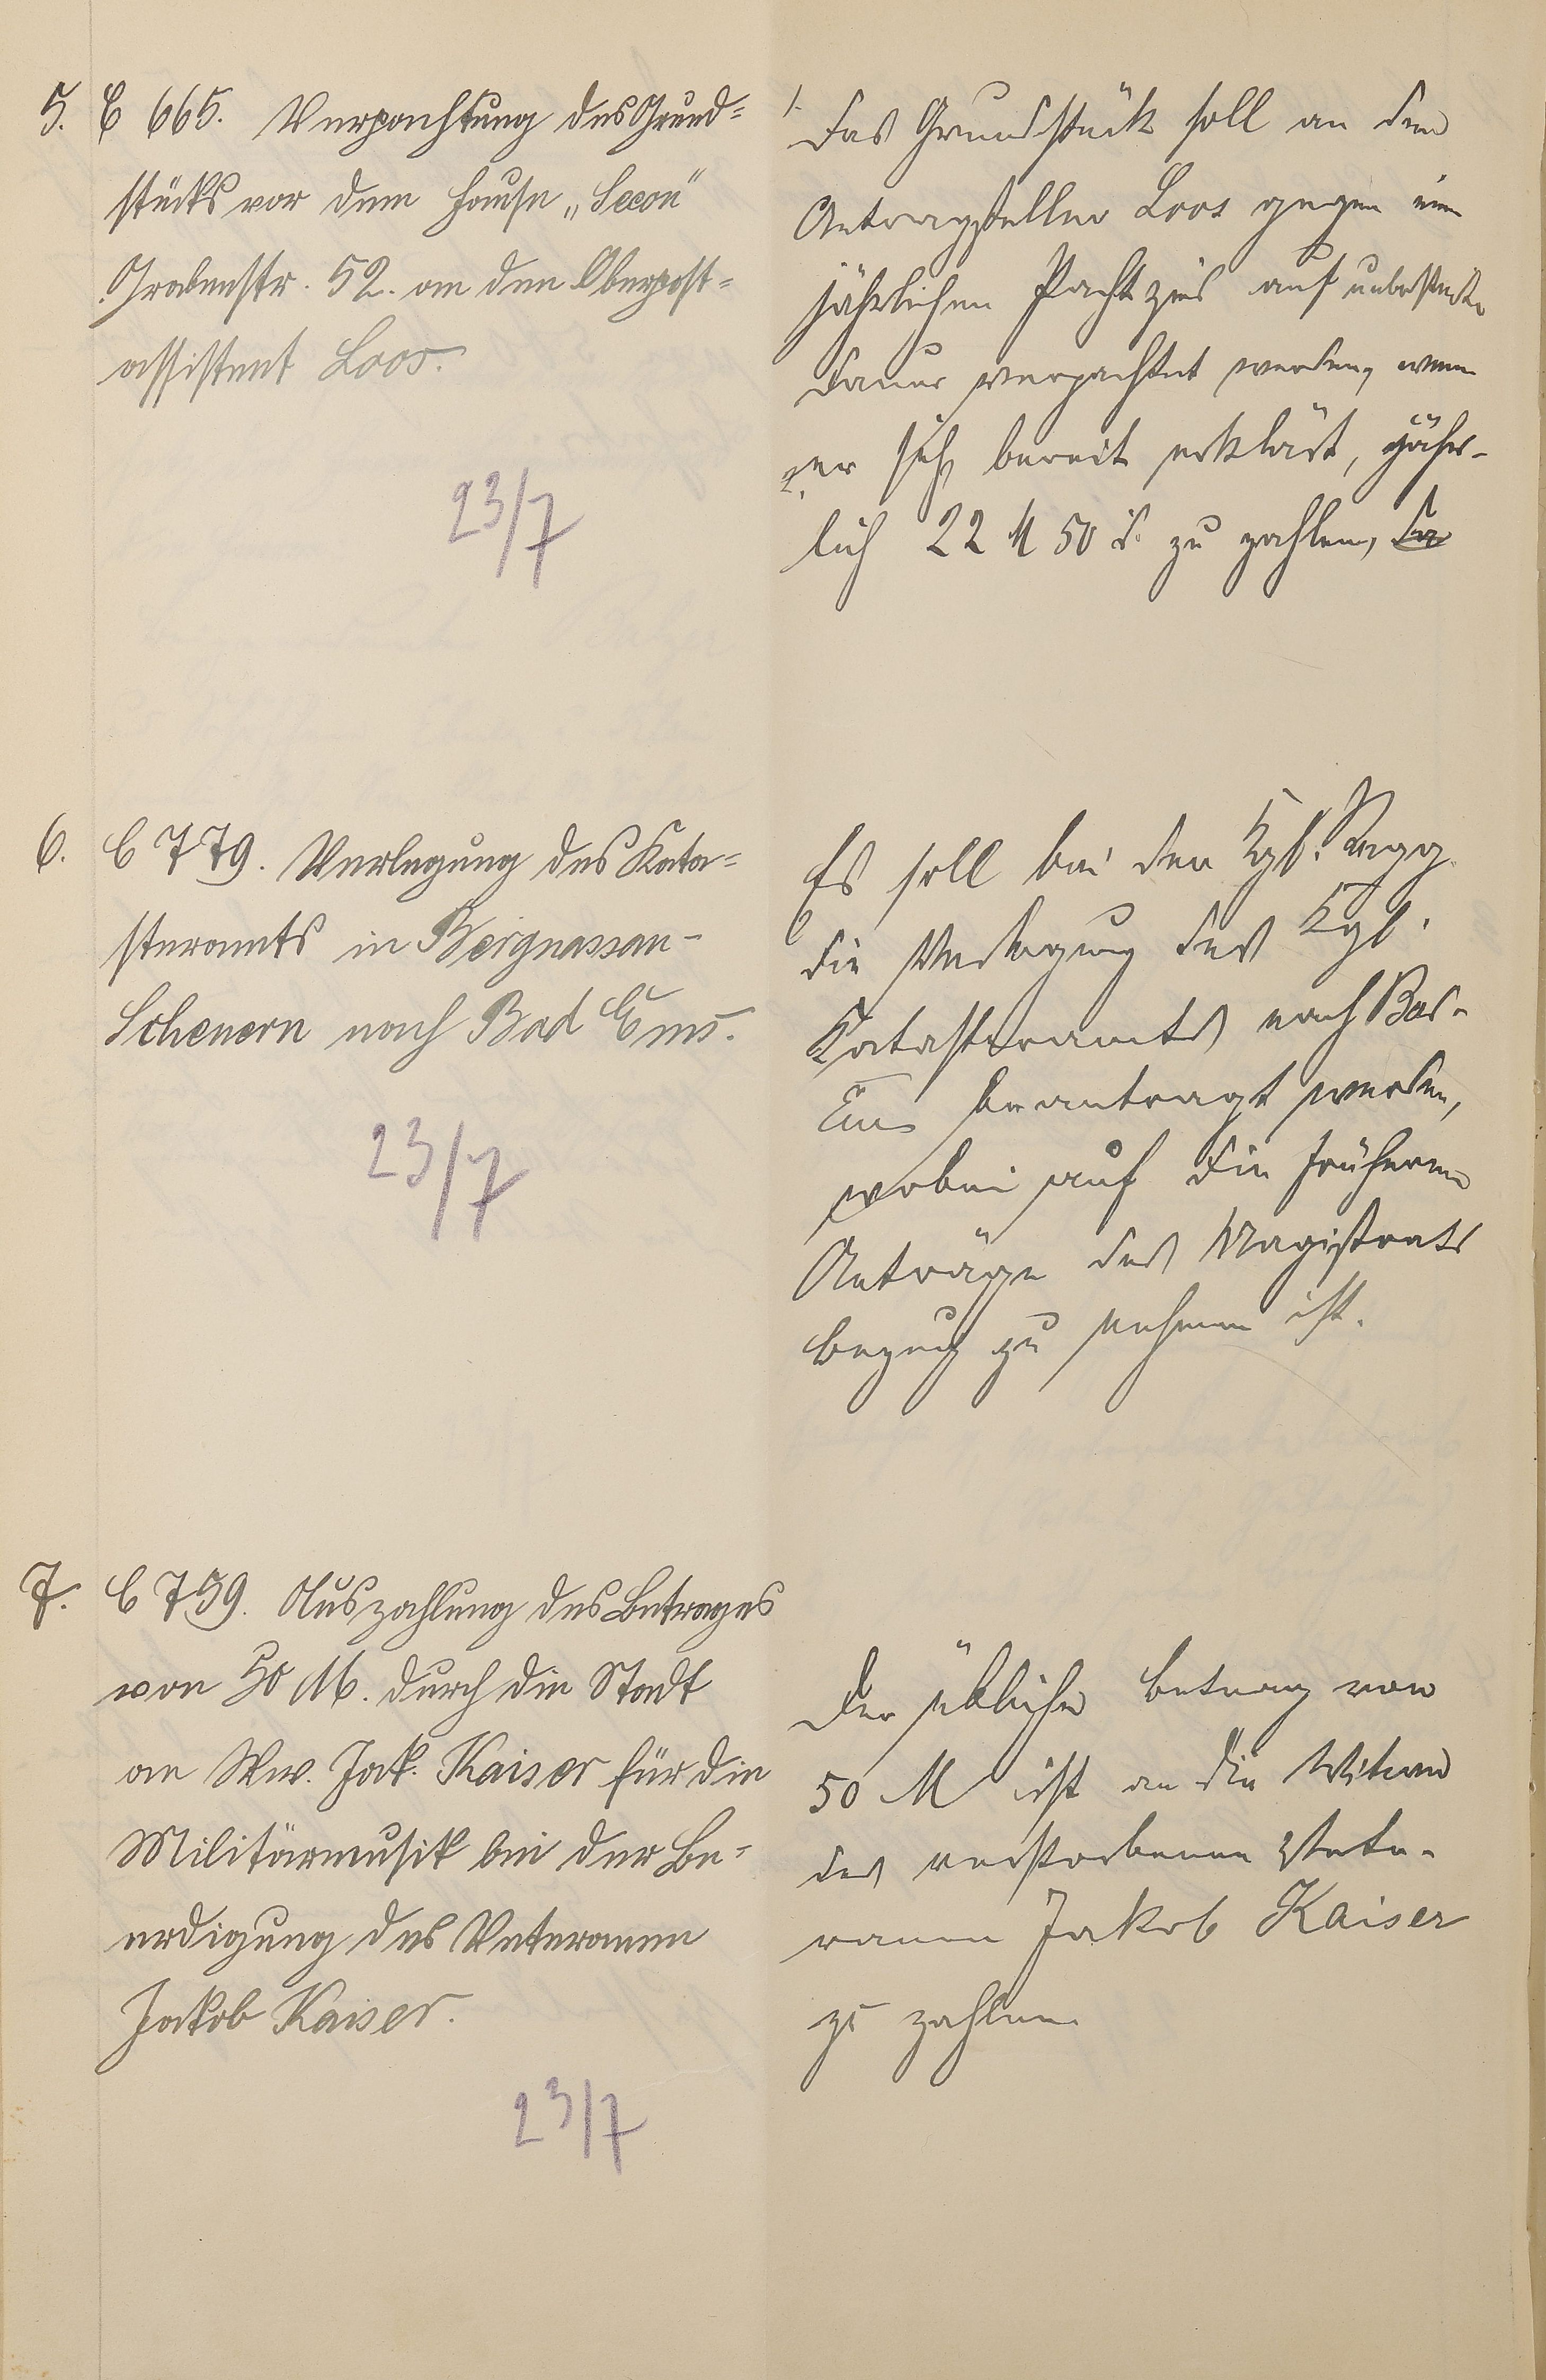 5. C 665. Verpachtung des Grund=
stücks vor dem Hause „Secon"
Grabenstr. 52. an den Oberpost=
assistent Loos.
23/7
Das Grundstück soll an den
Antragsteller Loos gegen einen
jährlichen Pachtzins auf unbestimmte
Dauer verpachtet werden, wenn
er sich bereit erklärt, jähr-
lich 22 M 50 d. zu zahlen,
6. C 779. Verlegung des Kata=
steramts in Bergnassau-
Scheuern nach Bad Ems.
23/7
Es soll bei der Kgl. Regg.
die Verlegung des Kgl.
Katasteramts nach Bad-
Ems beantragt werden,
wobei auf die früheren
Anträge des Magistrats
bezug zu nehmen ist.
7. C 759. Auszahlung des Betrages
von 50 M. durch die Stadt
an Ww. Jak. Kaiser für die
Militärmusik bei der Be=
erdigung des Veteranen
Jakob Kaiser.
23/7
Der übliche Betrag von
50 M ist an die Witwe
des verstorbenen Vete-
ranen Jakob Kaiser
zu zahlen